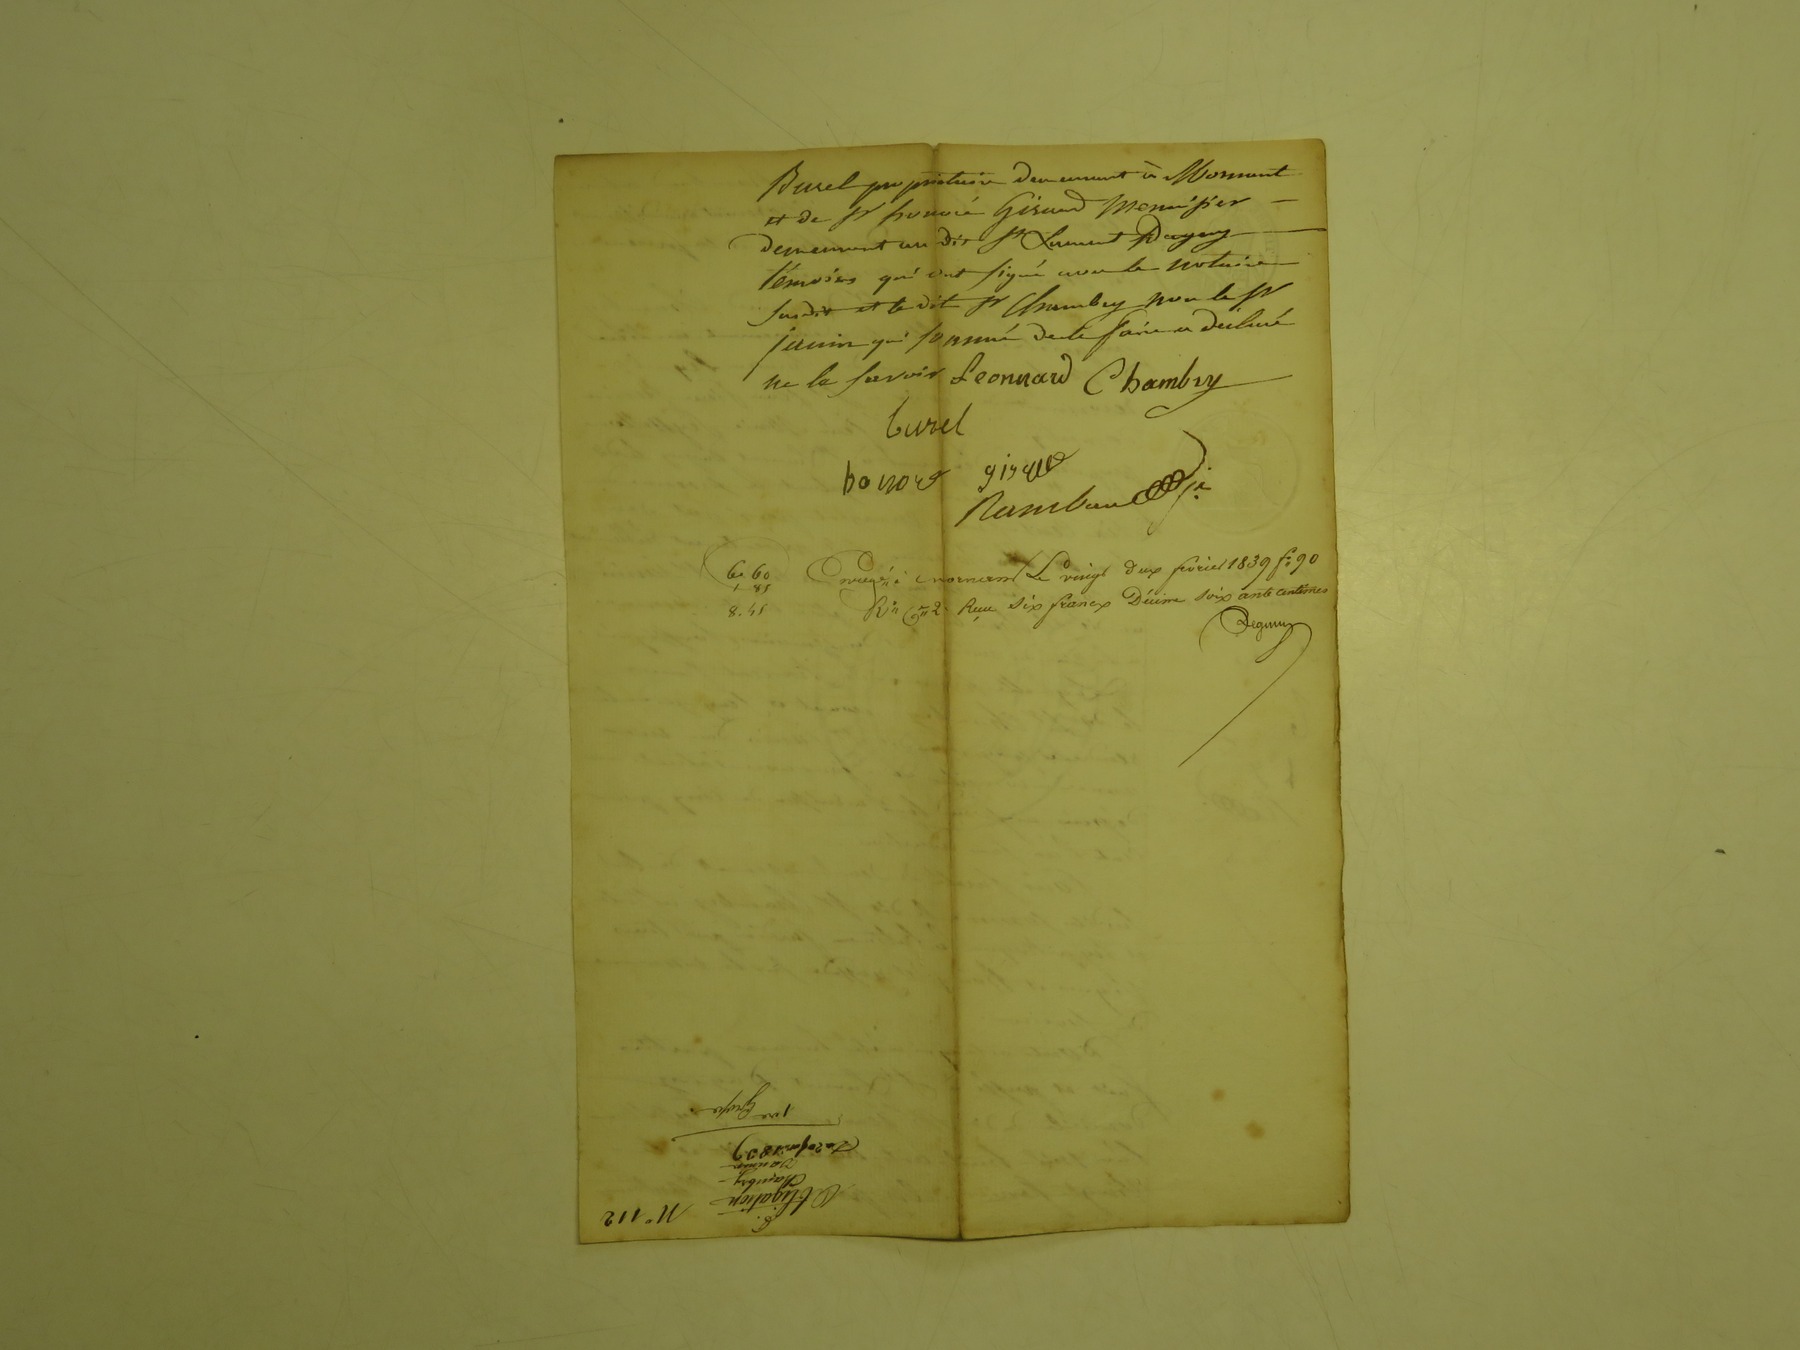 Burel propriétaire demeurant à Mornant
et de Sr honoré Giraud Menuisier
demeurant au dit St Laurent Dagny
témoins qui ont signé avec le notaire
susdit et le dit Sr Chambry non le Sr
qui sommé de le faire a déclaré
ne le savoir Leonnard Chambry
burel
honoré giraud
Rambaud
6 60
1 85
8.45
Enregé à mornant Le vingt deux février 1839 fo 90
Ro Cse 2 Reçu six francs Décime soixante centimes
No 112
Obligation
Chambry
1839
1re Grosse